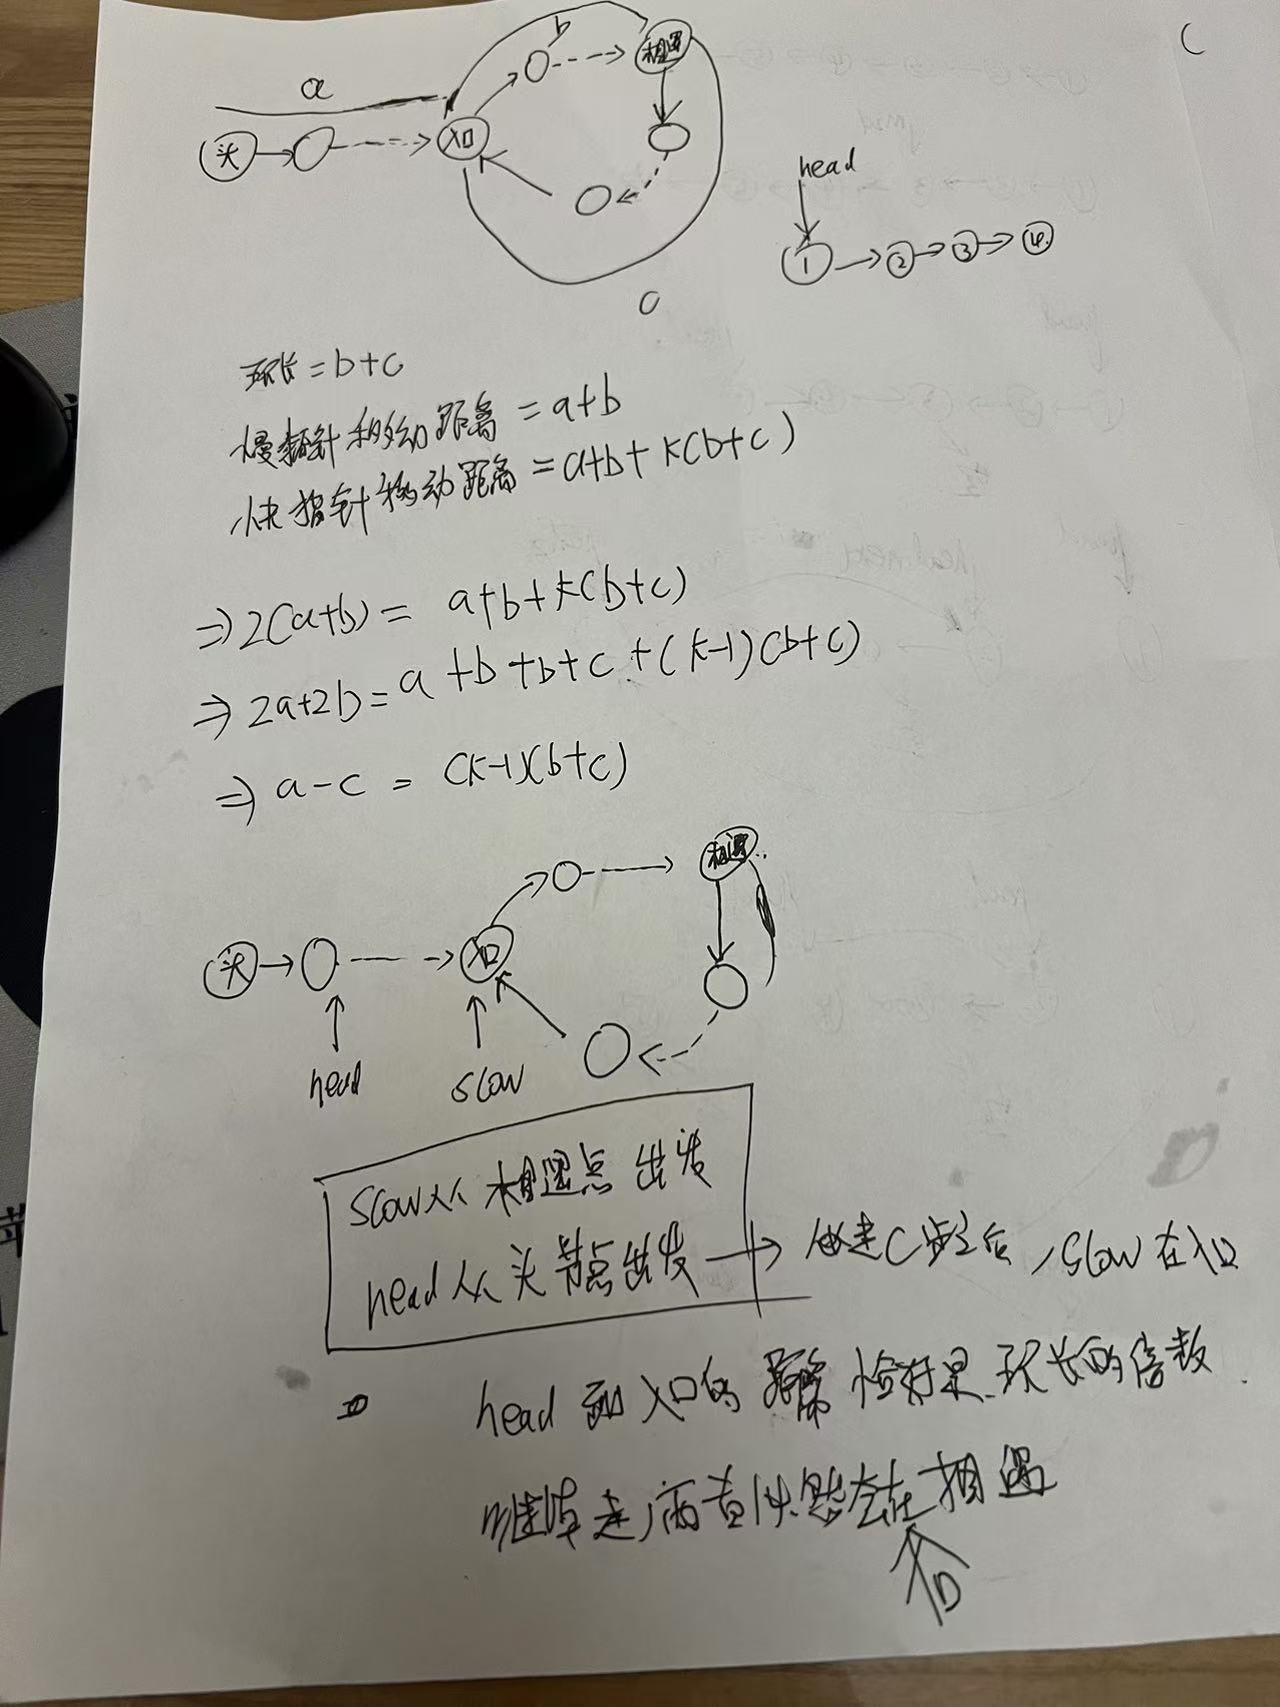 a
b
相遇
头
入口
c
head
1 2 3 4
环长 = b+c
慢指针移动距离 = a+b
快指针移动距离 = a+b+k(b+c)
⇒ 2(a+b) = a+b+k(b+c)
⇒ 2a+2b = a+b+b+c+(k-1)(b+c)
⇒ a-c = (k-1)(b+c)
相遇
头
入口
head
slow
slow从相遇点出发
head从头节点出发 → 走c步之后,slow在入口
head到入口的距离恰好是环长的倍数.
继续走,两者必然会在相遇
入口